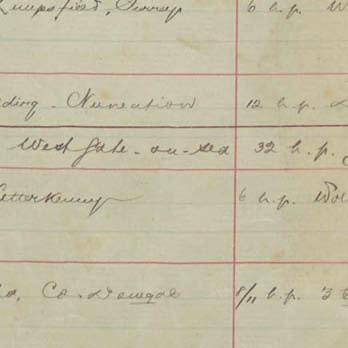 Limpsfield, Surrey 6 h.p. W
ding - Nuneaton 12 h.p.
Westgate-on-sea 32 h.p.
Letterkenny 6 h.p. Wol
Co. Donegal 8/11 h.p. 3